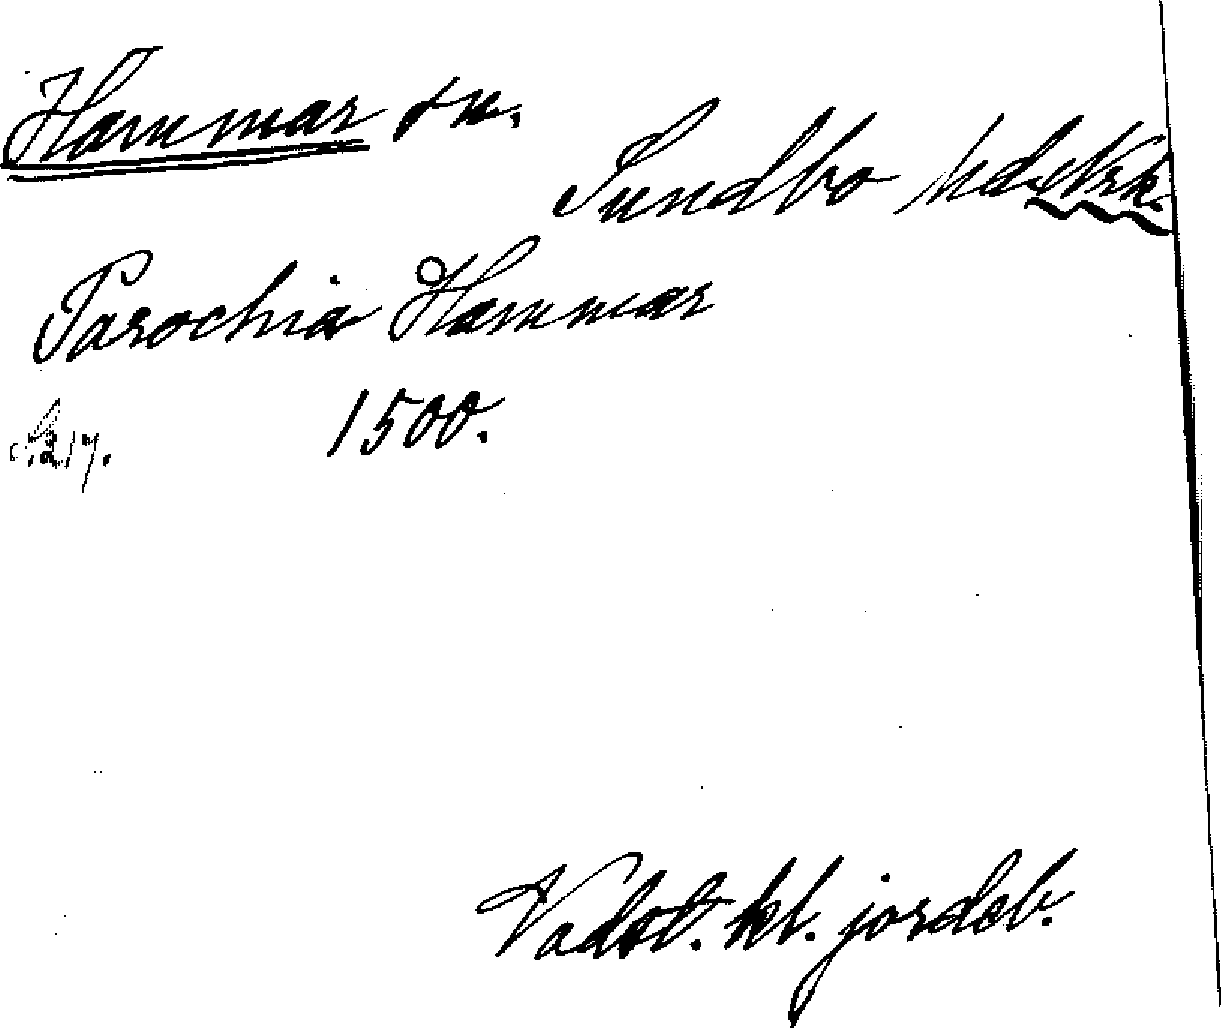 Hammar sn.
Sundbo hd. Nrk.
Parochia Hammar
S. 217. 1500.
Vadst. kl. jordeb.